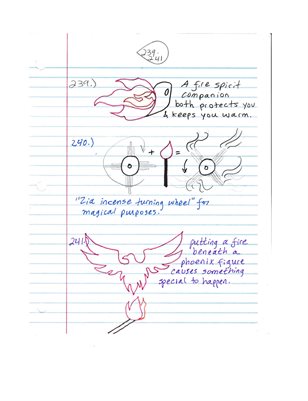 239.
241
239.)
A fire spirit
companion
both protects you
& keeps you warm.
240.)
+ =
"Zia incense turning wheel" for
magical purposes.
241.)
putting a fire
beneath a
phoenix figure
causes something
special to happen.